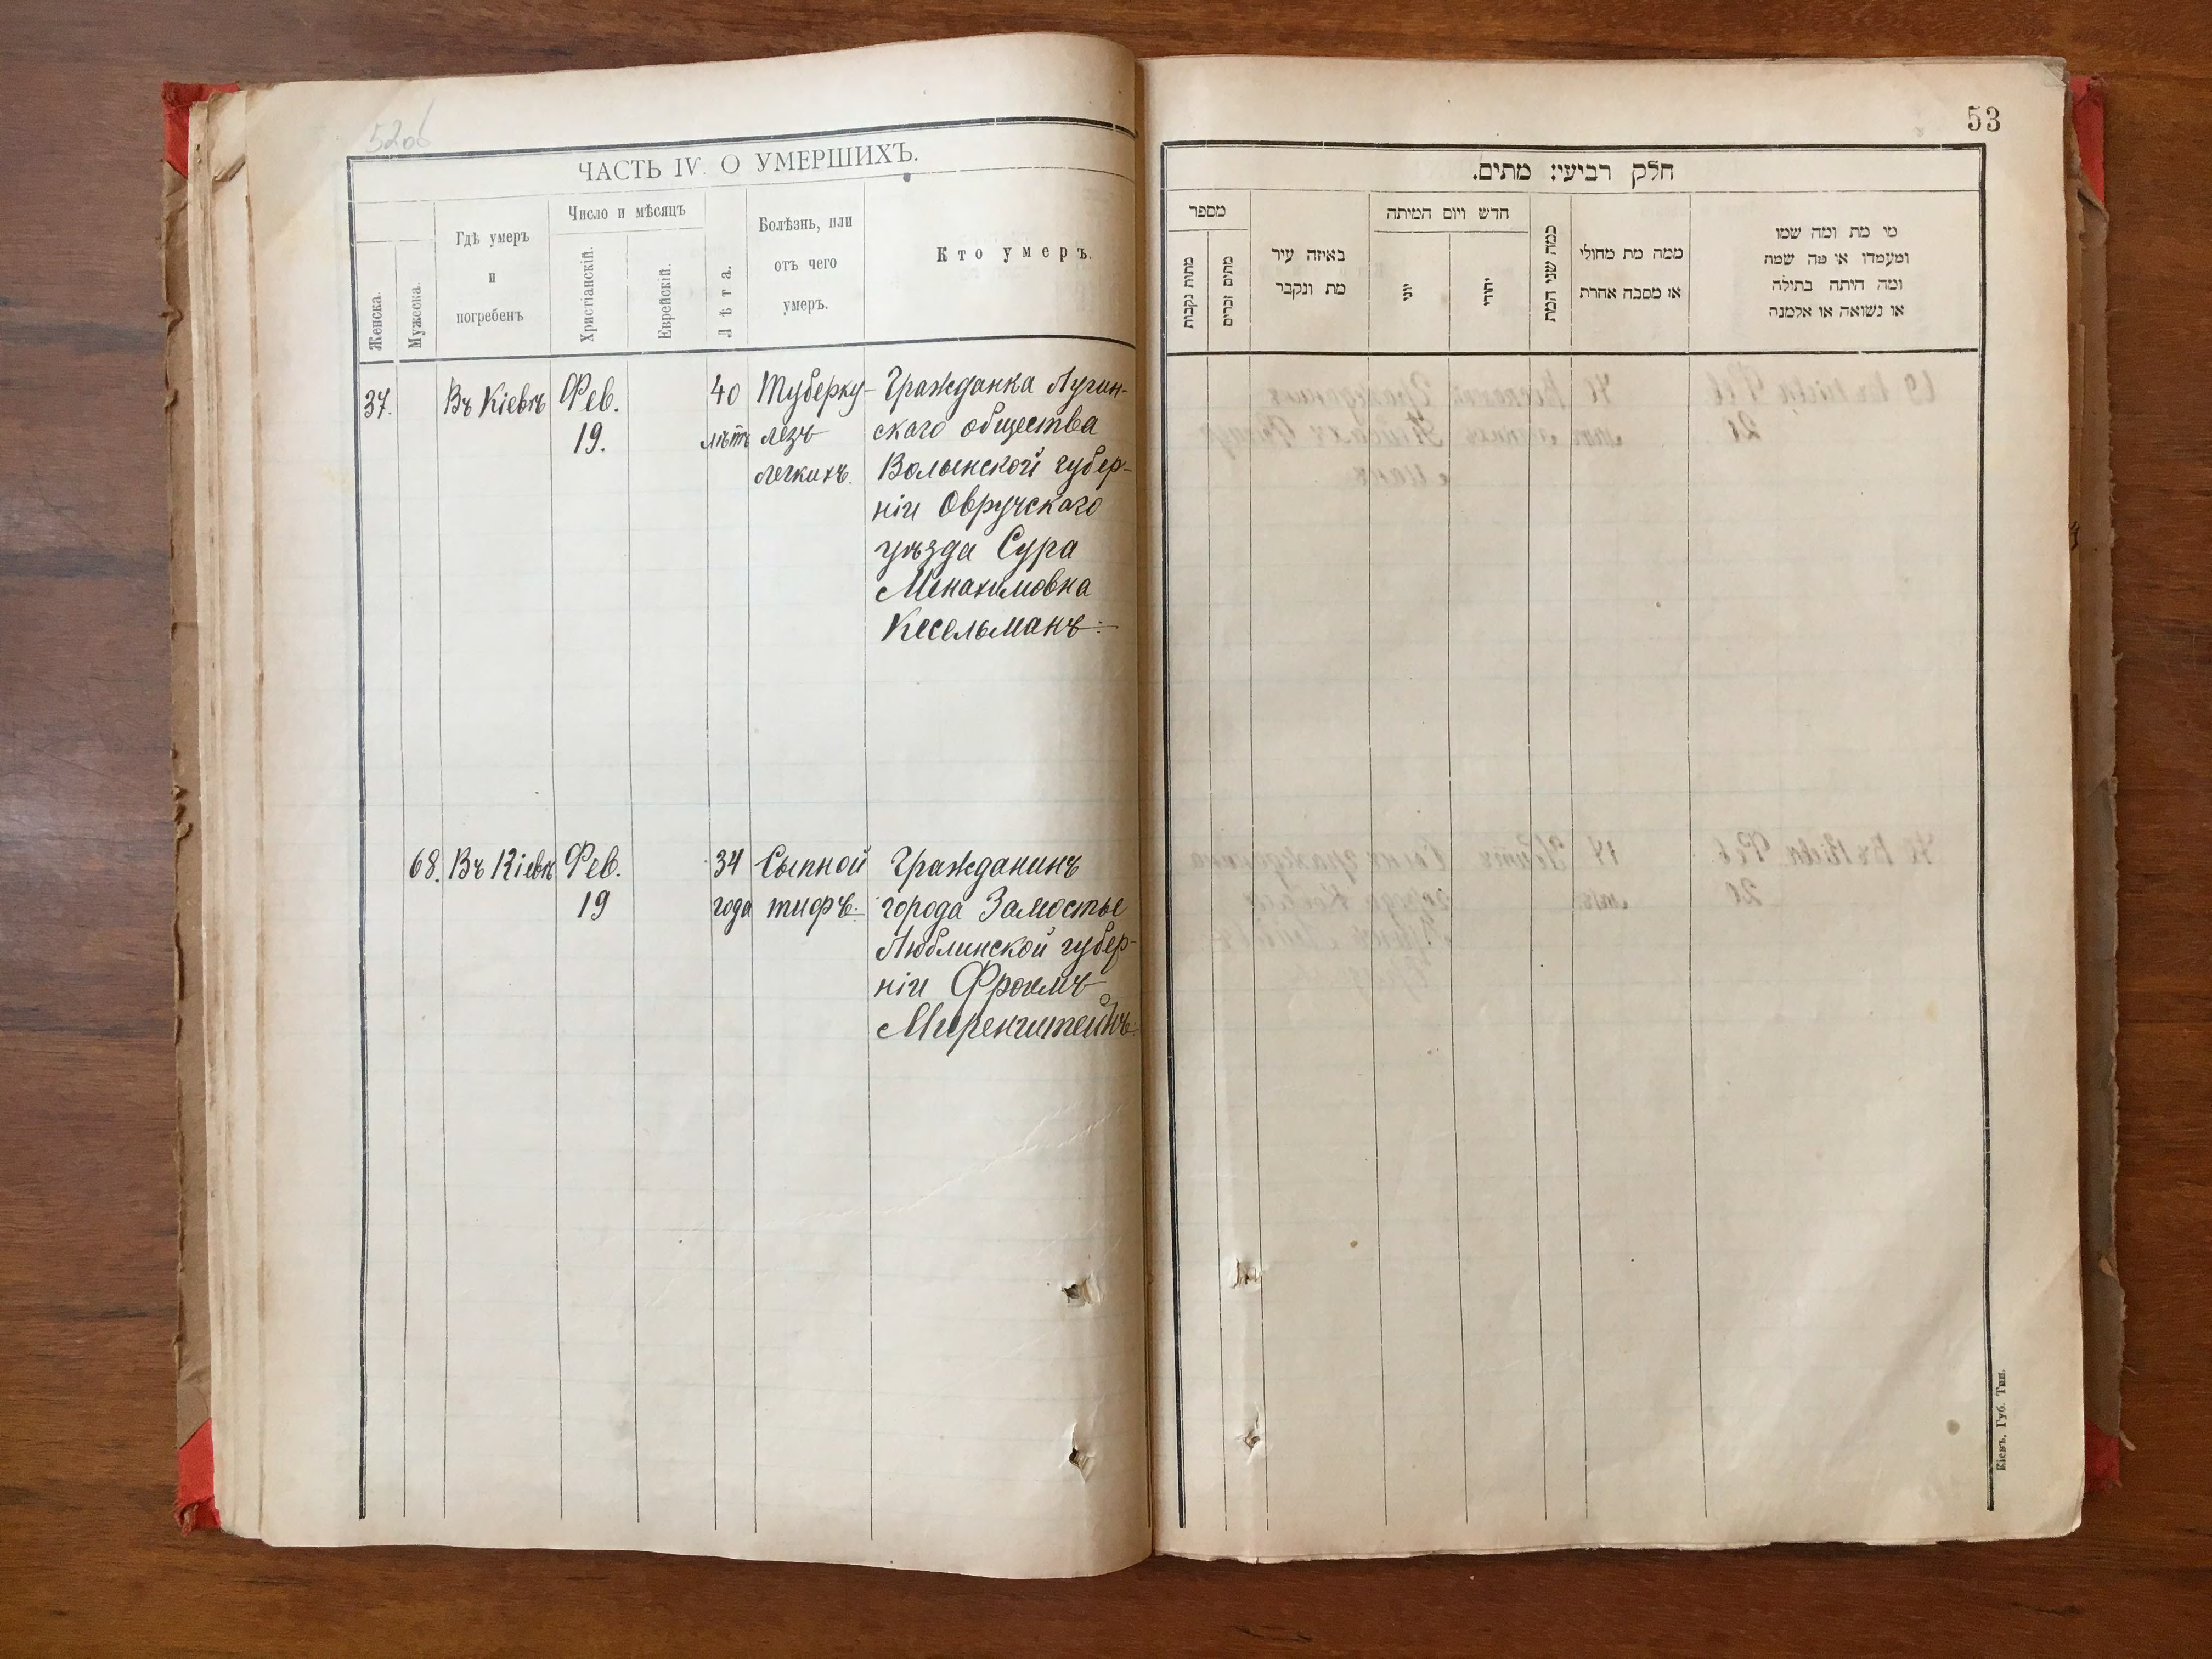 52об
ЧАСТЬ IV. О УМЕРШИХЪ.
Женска.
Мужеска.
Гдѣ умеръ
и
погребенъ
Число и мѣсяцъ
Христіанскій.
Еврейскій.
Лѣта.
Болѣзнь, или
отъ чего
умеръ.
Кто умеръ.
37.
Въ Кіевѣ
Фев.
19.
40
лѣтъ
Туберку-
лезъ
легкихъ.
Гражданка Лугин-
скаго общества
Волынской губер-
ніи Овручскаго
уѣзда Сура
Менахимовна
Кесельманъ.
68.
Въ Кіевѣ
Фев.
19
34
года
Сыпной
тифъ.
Гражданинъ
города Замостье
Люблинской губер-
ніи Фроимъ
Миренштейнъ.
53
חלק רביעי: מתים.
מספר
מתות נקבות
מתים זכרים
באיזה עיר
מת ונקבר
חדש ויום המיתה
יוני
יהודי
כמה שני המת
ממה מת מחולי
או מסבה אחרת
מי מת ומה שמו
ומעמדו או מה שמה
ומה היתה בתולה
או נשואה או אלמנה
Кіевъ, Губ. Тип.